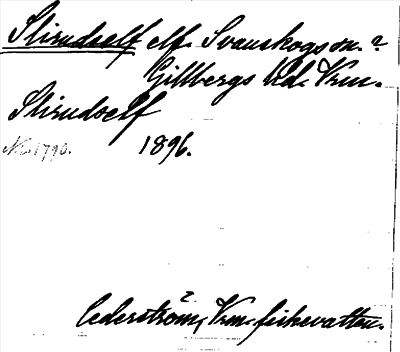 Slirudself elf. Svanskogs sn.?
Gillbergs hd. Vrm.
Slirudself
1896.
Cederström, Vrm. fiskevatten.